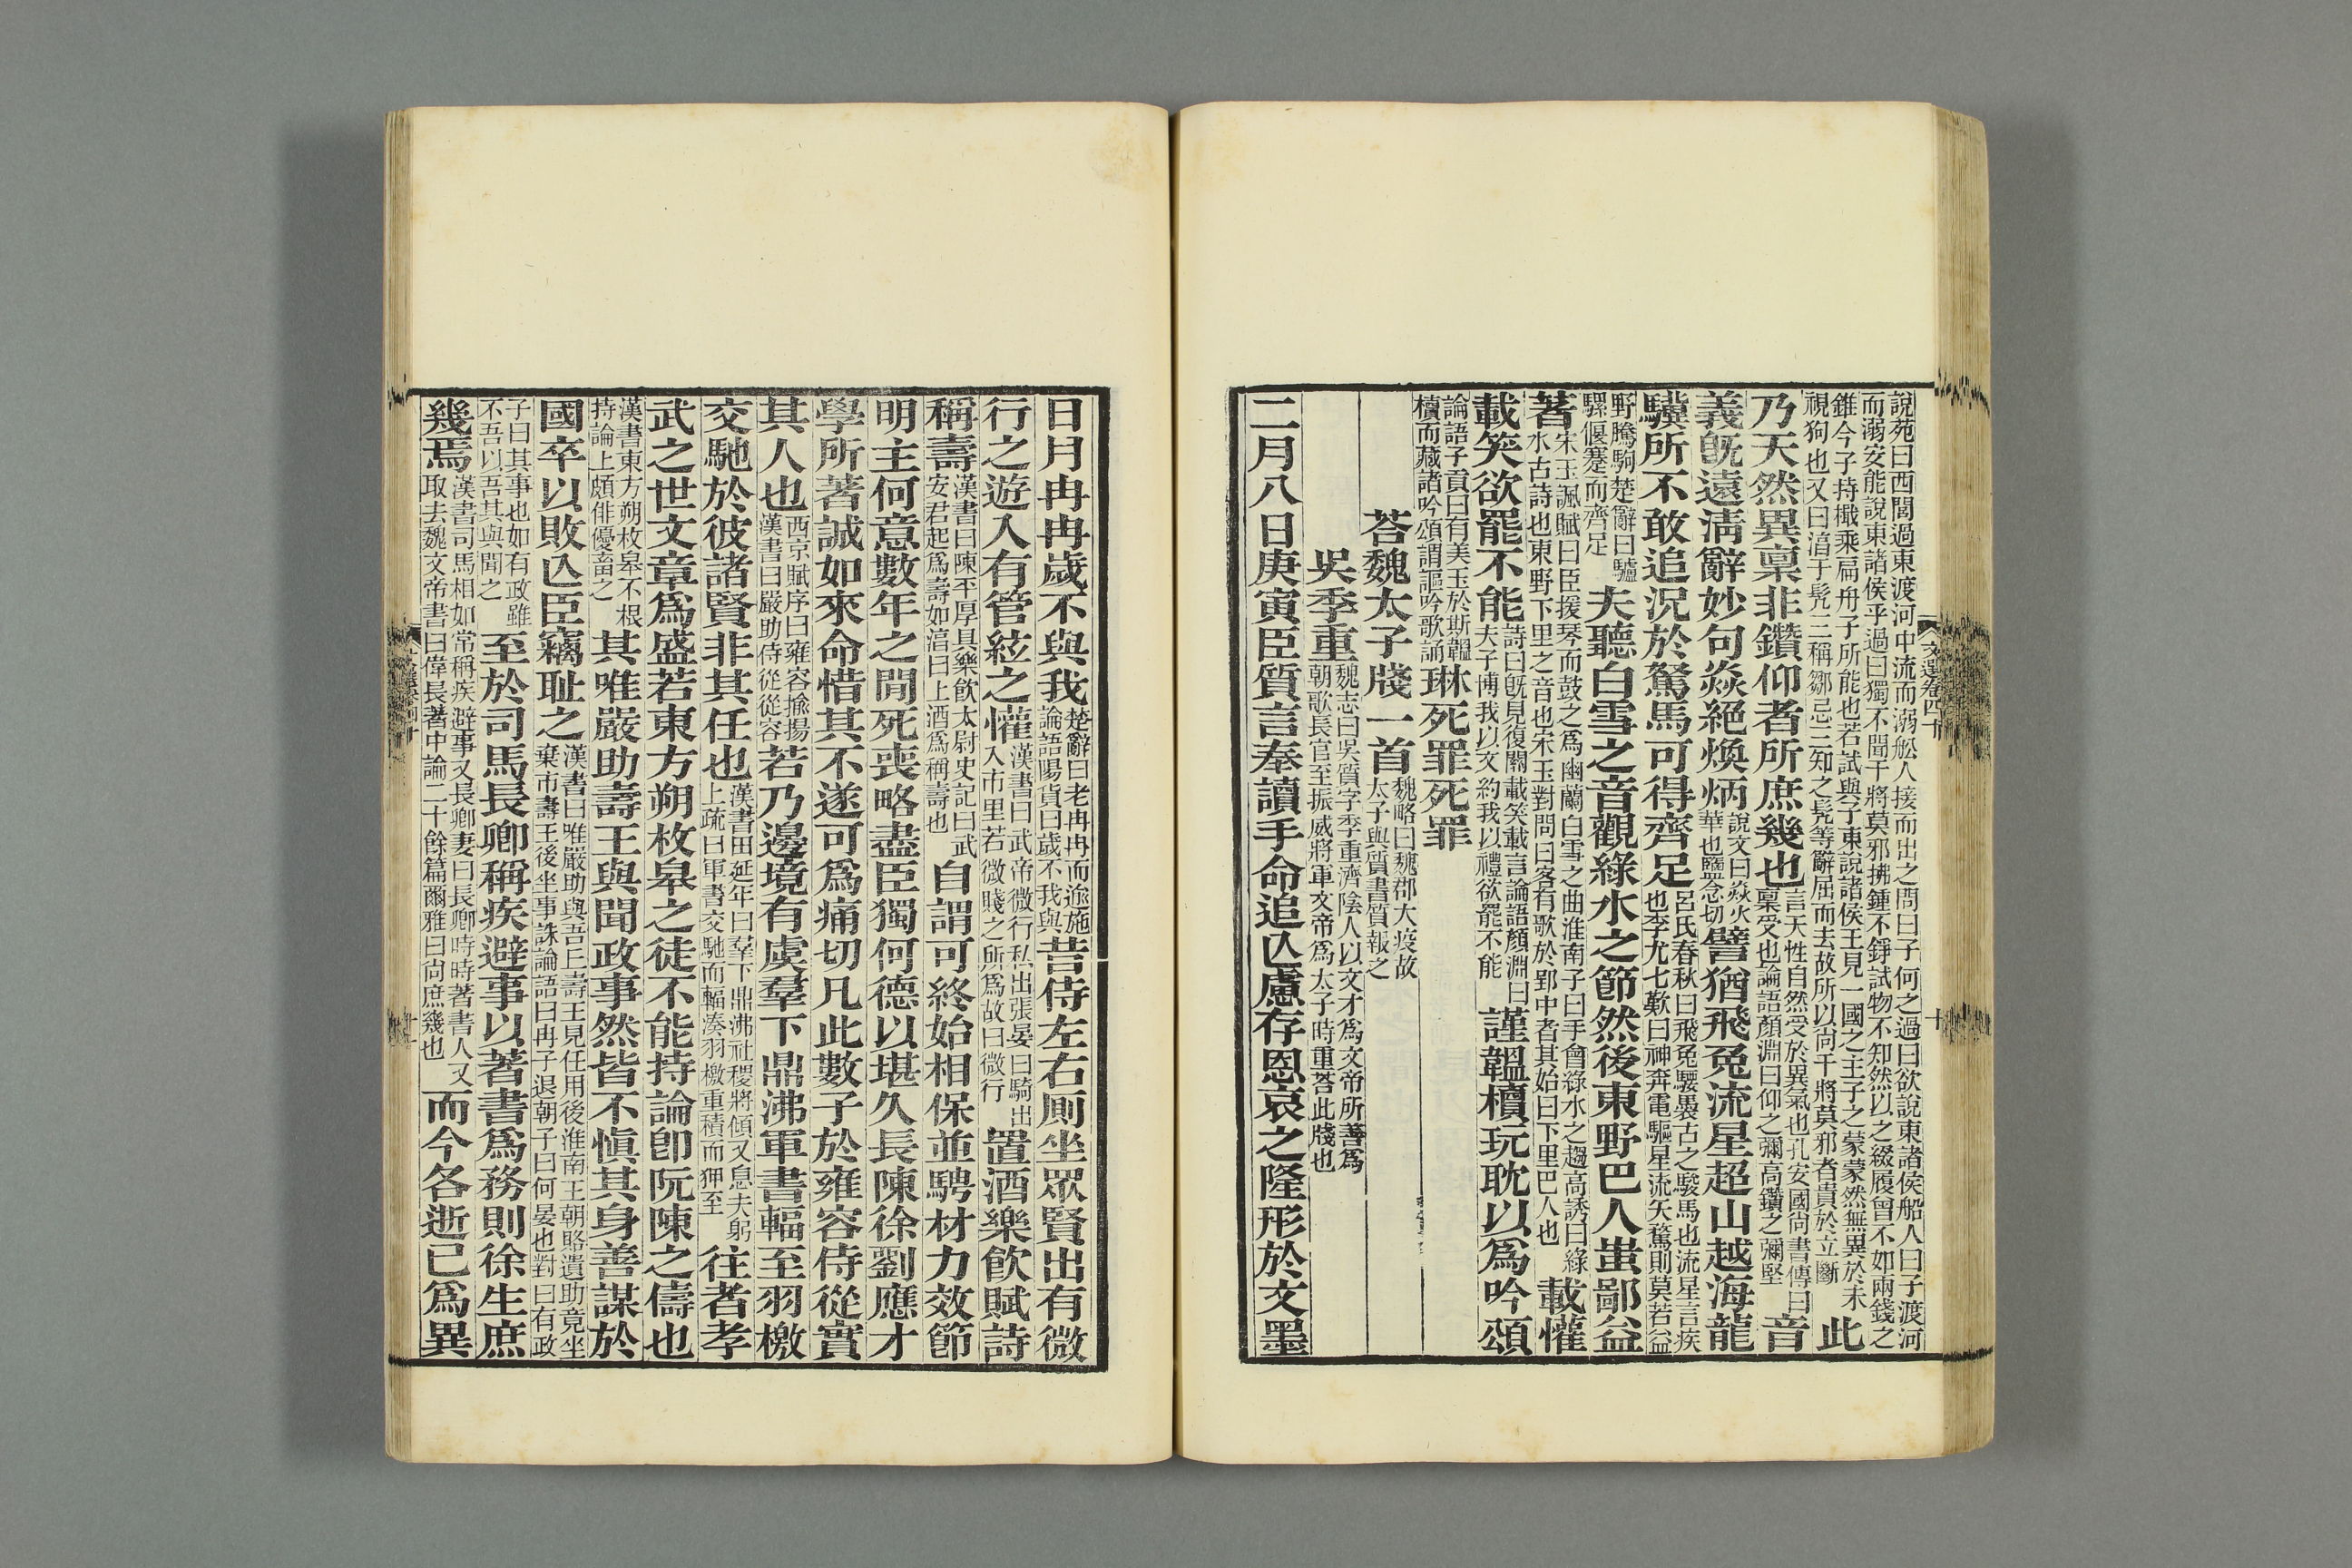 說苑曰西閭過東渡河中流而溺舩人接而出之問曰子何之過曰欲說東諸侯船人曰子渡河
而溺安能說東諸侯乎過曰獨不聞干將莫邪拂鍾不錚試物不知然以之綴履曾不如兩錢之
錐今子持檝乘扁舟子所能也若試與子東說諸侯王見一國之主子之蒙蒙然無異於未視狗也又曰淳于髡三稱鄒忌三知之髡等辭屈而去故所以尚干將莫邪者貴於立斷此
乃天然異稟非鑽仰者所庶幾也言天性自然受於異氣也孔安國尚書傳曰稟受也論語顏淵曰仰之彌高鑽之彌堅音
義旣遠淸辭妙句焱絕煥炳說文曰焱火華也鹽念切譬猶飛兔流星超山越海龍
驥所不敢追況於駑馬可得齊足呂氏春秋曰飛兔騕褭古之駿馬也流星言疾也李尤七歎曰神奔電驅星流矢騖則莫若益
野騰駒楚辭曰驢騾偃蹇而齊足夫聽白雪之音觀綠水之節然後東野巴人蚩鄙益
著宋玉諷賦曰臣援琴而鼓之爲幽蘭白雪之曲淮南子曰手會綠水之趨高誘曰綠水古詩也東野下里之音也宋玉對問曰客有歌於郢中者其始曰下里巴人也載懽
載笑欲罷不能詩曰旣見復關載笑載言論語顏淵曰夫子博我以文約我以禮欲罷不能謹韞櫝玩耽以爲吟頌
論語子貢曰有美玉於斯韞櫝而藏諸吟頌謂謳吟歌誦琳死罪死罪
荅魏太子牋一首魏略曰魏郡大疫故太子與質書質報之
吳季重魏志曰吳質字季重濟陰人以文才爲文帝所善爲朝歌長官至振威將軍文帝爲太子時重荅此牋也
二月八日庚寅臣質言奉讀手命追亾慮存恩哀之隆形於文墨
文選卷四十
十
日月冉冉歲不與我楚辭曰老冉冉而逾施論語陽貨曰歲不我與昔侍左右廁坐眾賢出有微
行之遊入有管絃之懽漢書曰武帝微行私出張晏曰騎出入市里若微賤之所爲故曰微行置酒樂飲賦詩
稱壽漢書曰陳平厚具樂飲太尉史記曰武安君起爲壽如淳曰上酒爲稱壽也自謂可終始相保並騁材力效節
明主何意數年之閒死喪略盡臣獨何德以堪久長陳徐劉應才
學所著誠如來命惜其不遂可爲痛切凡此數子於雍容侍從實
其人也西京賦序曰雍容揄揚漢書曰嚴助侍從從容若乃邊境有虞羣下鼎沸軍書輻至羽檄
交馳於彼諸賢非其任也漢書田延年曰羣下鼎沸社稷將傾又息夫躬上疏曰軍書交馳而輻湊羽檄重積而狎至往者孝
武之世文章爲盛若東方朔枚皋之徒不能持論卽阮陳之儔也
漢書東方朔枚皋不根持論上頗俳優畜之其唯嚴助壽王與聞政事然皆不愼其身善謀於
國卒以敗亾臣竊耻之漢書曰唯嚴助與吾丘壽王見任用後淮南王朝賂遺助竟坐棄市壽王後坐事誅論語曰冉子退朝子曰何晏也對曰有政
子曰其事也如有政雖不吾以吾其與聞之至於司馬長卿稱疾避事以著書爲務則徐生庶
幾焉漢書司馬相如常稱疾避事又長卿妻曰長卿時時著書人又取去魏文帝書曰偉長著中論二十餘篇爾雅曰尚庶幾也而今各逝已爲異